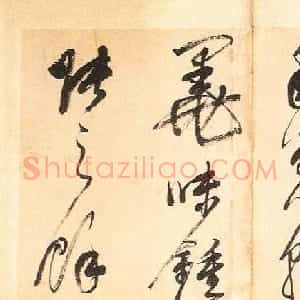 墨味鍾
張之餘
Shufaziliao.com